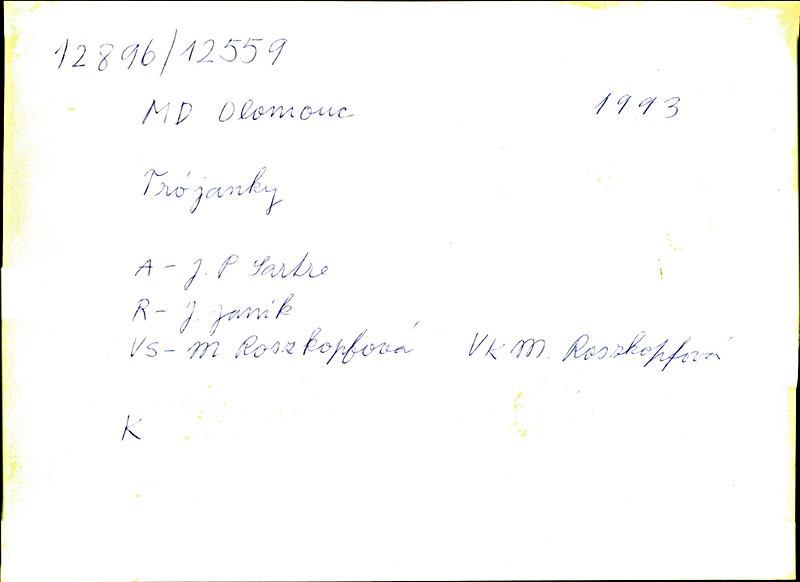 12896/12559
MD Olomouc 1993
Trójanky
A - J. P Sartre
R - J. Janik
VS - M Roszkopfová VK M. Roszkopfová
K